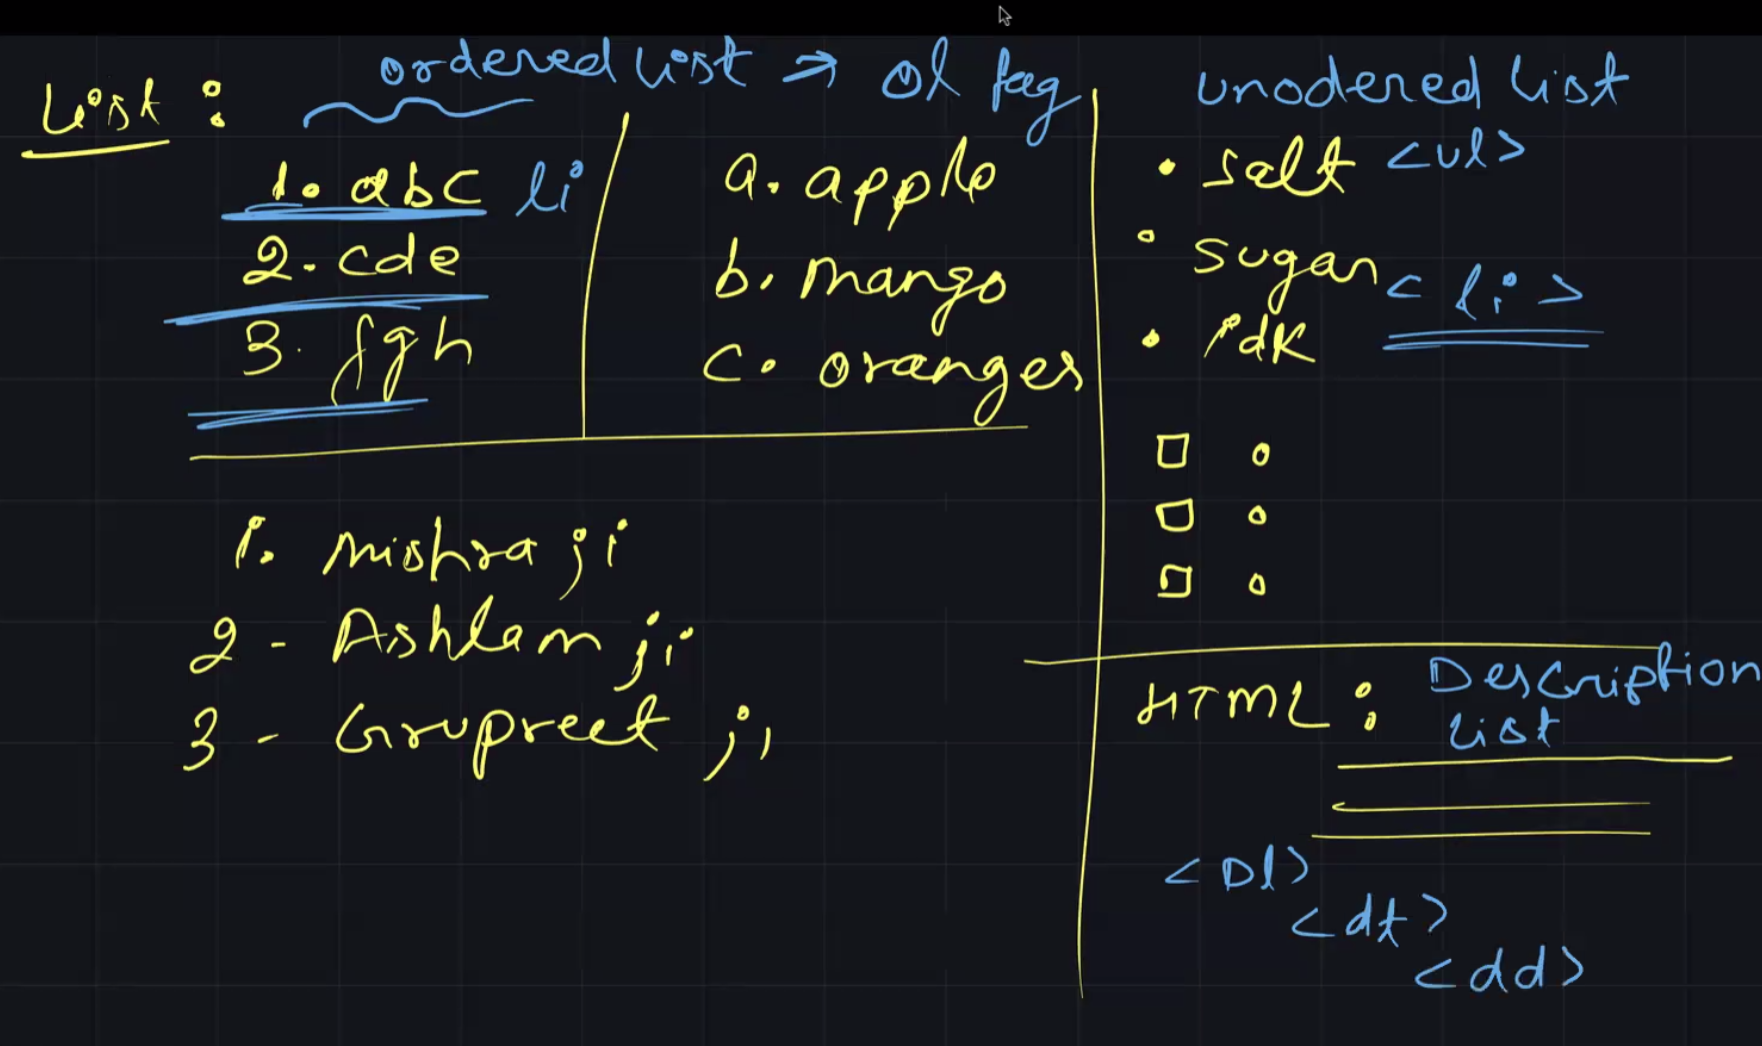 List :
ordered list → ol tag
1. abc li
2. cde
3. fgh
a. apple
b. mango
c. oranges
1. mishra ji
2 - Ashlam ji
3 - Grupreet ji
unodered list
• salt <ul>
• sugar <li>
• idk
HTML : Description
list
<Dl>
<dt>
<dd>